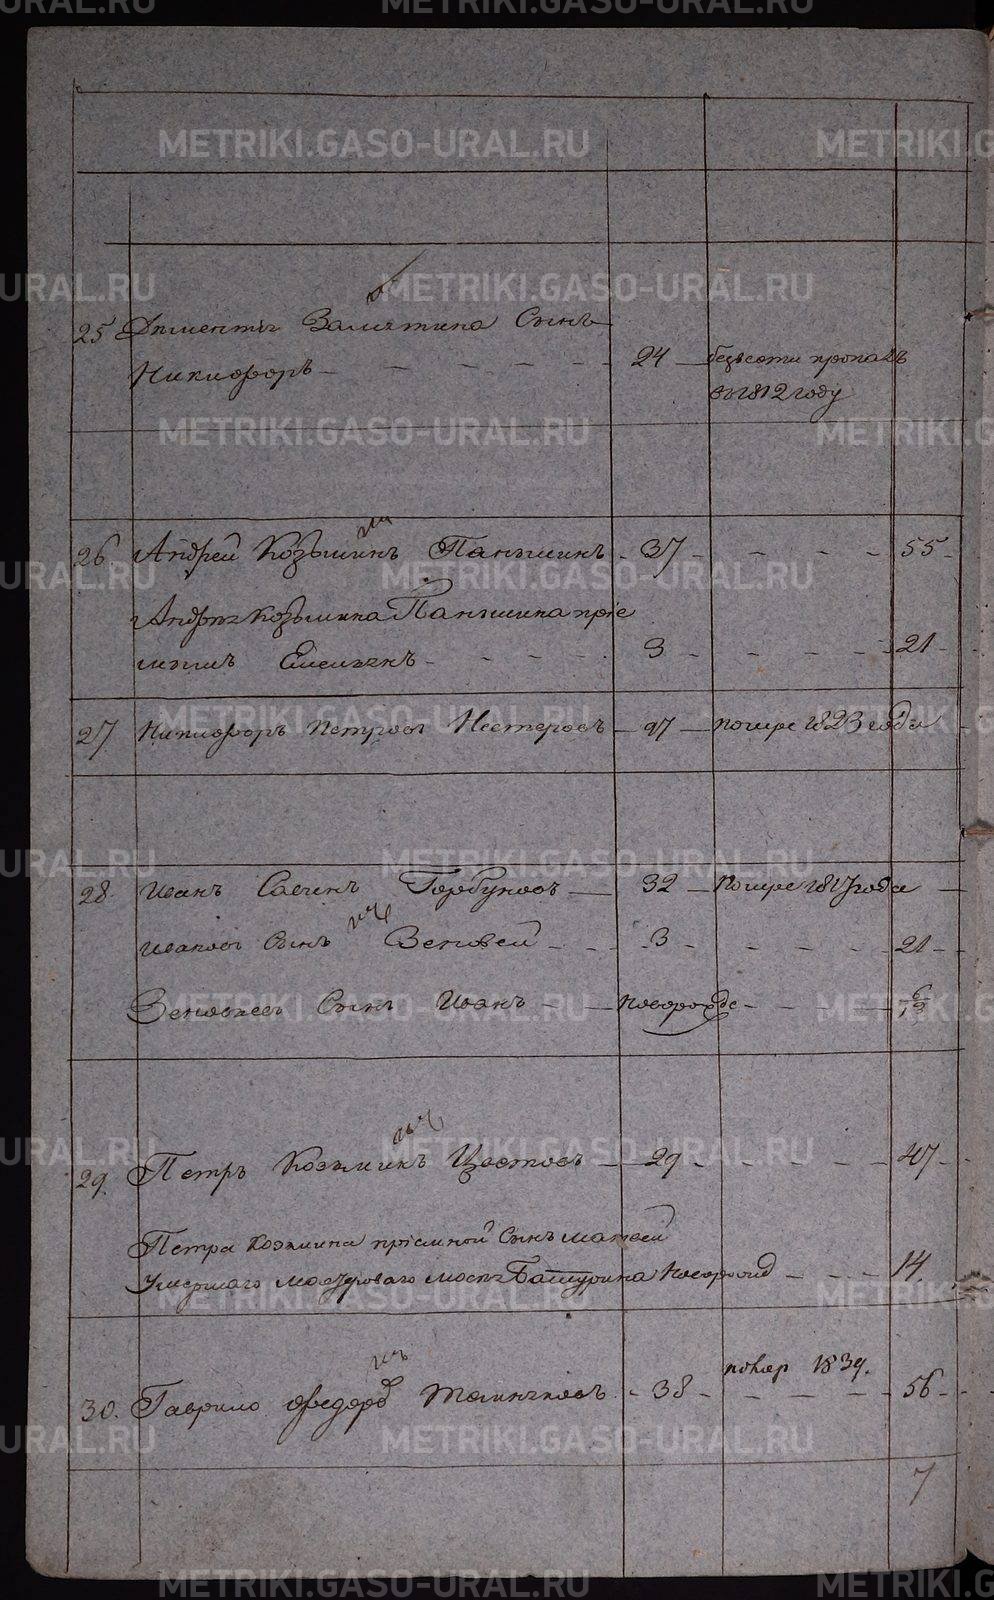 METRIKI.GASO-URAL.RU
25 Дементiя Замятина Сынъ
Никифоръ - 24 безвести пропалъ
въ 1812 году
26 Андрей Козьминъ Паньшинъ - 37 - 55
Андрея Козьмина Паньшина прiе
мышъ Емельянъ - 3 - 21
27 Никифоръ Петровъ Нестеровъ - 47 - помре 1823 года
28 Иванъ Савинъ Горбуновъ - 32 - помре 1817 года
Ивановъ Сынъ Зеновей - 3 - 21
Зеновьевъ Сынъ Иванъ - новорожде -
29. Петръ Козьминъ Цветовъ - 29 - 47
Петра Козмина прiемной Сынъ Матвей
Умершаго Батурина новорожд - 14
30. Гаврило Федоровъ - 38 - помер 1834. 56
7